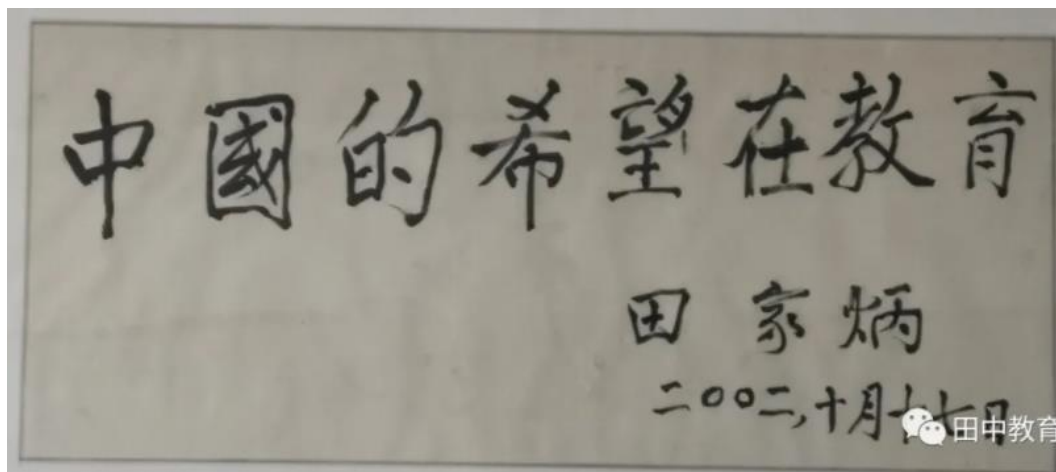 中國的希望在教育
田家炳
二〇〇二,十月十七日
田中教育